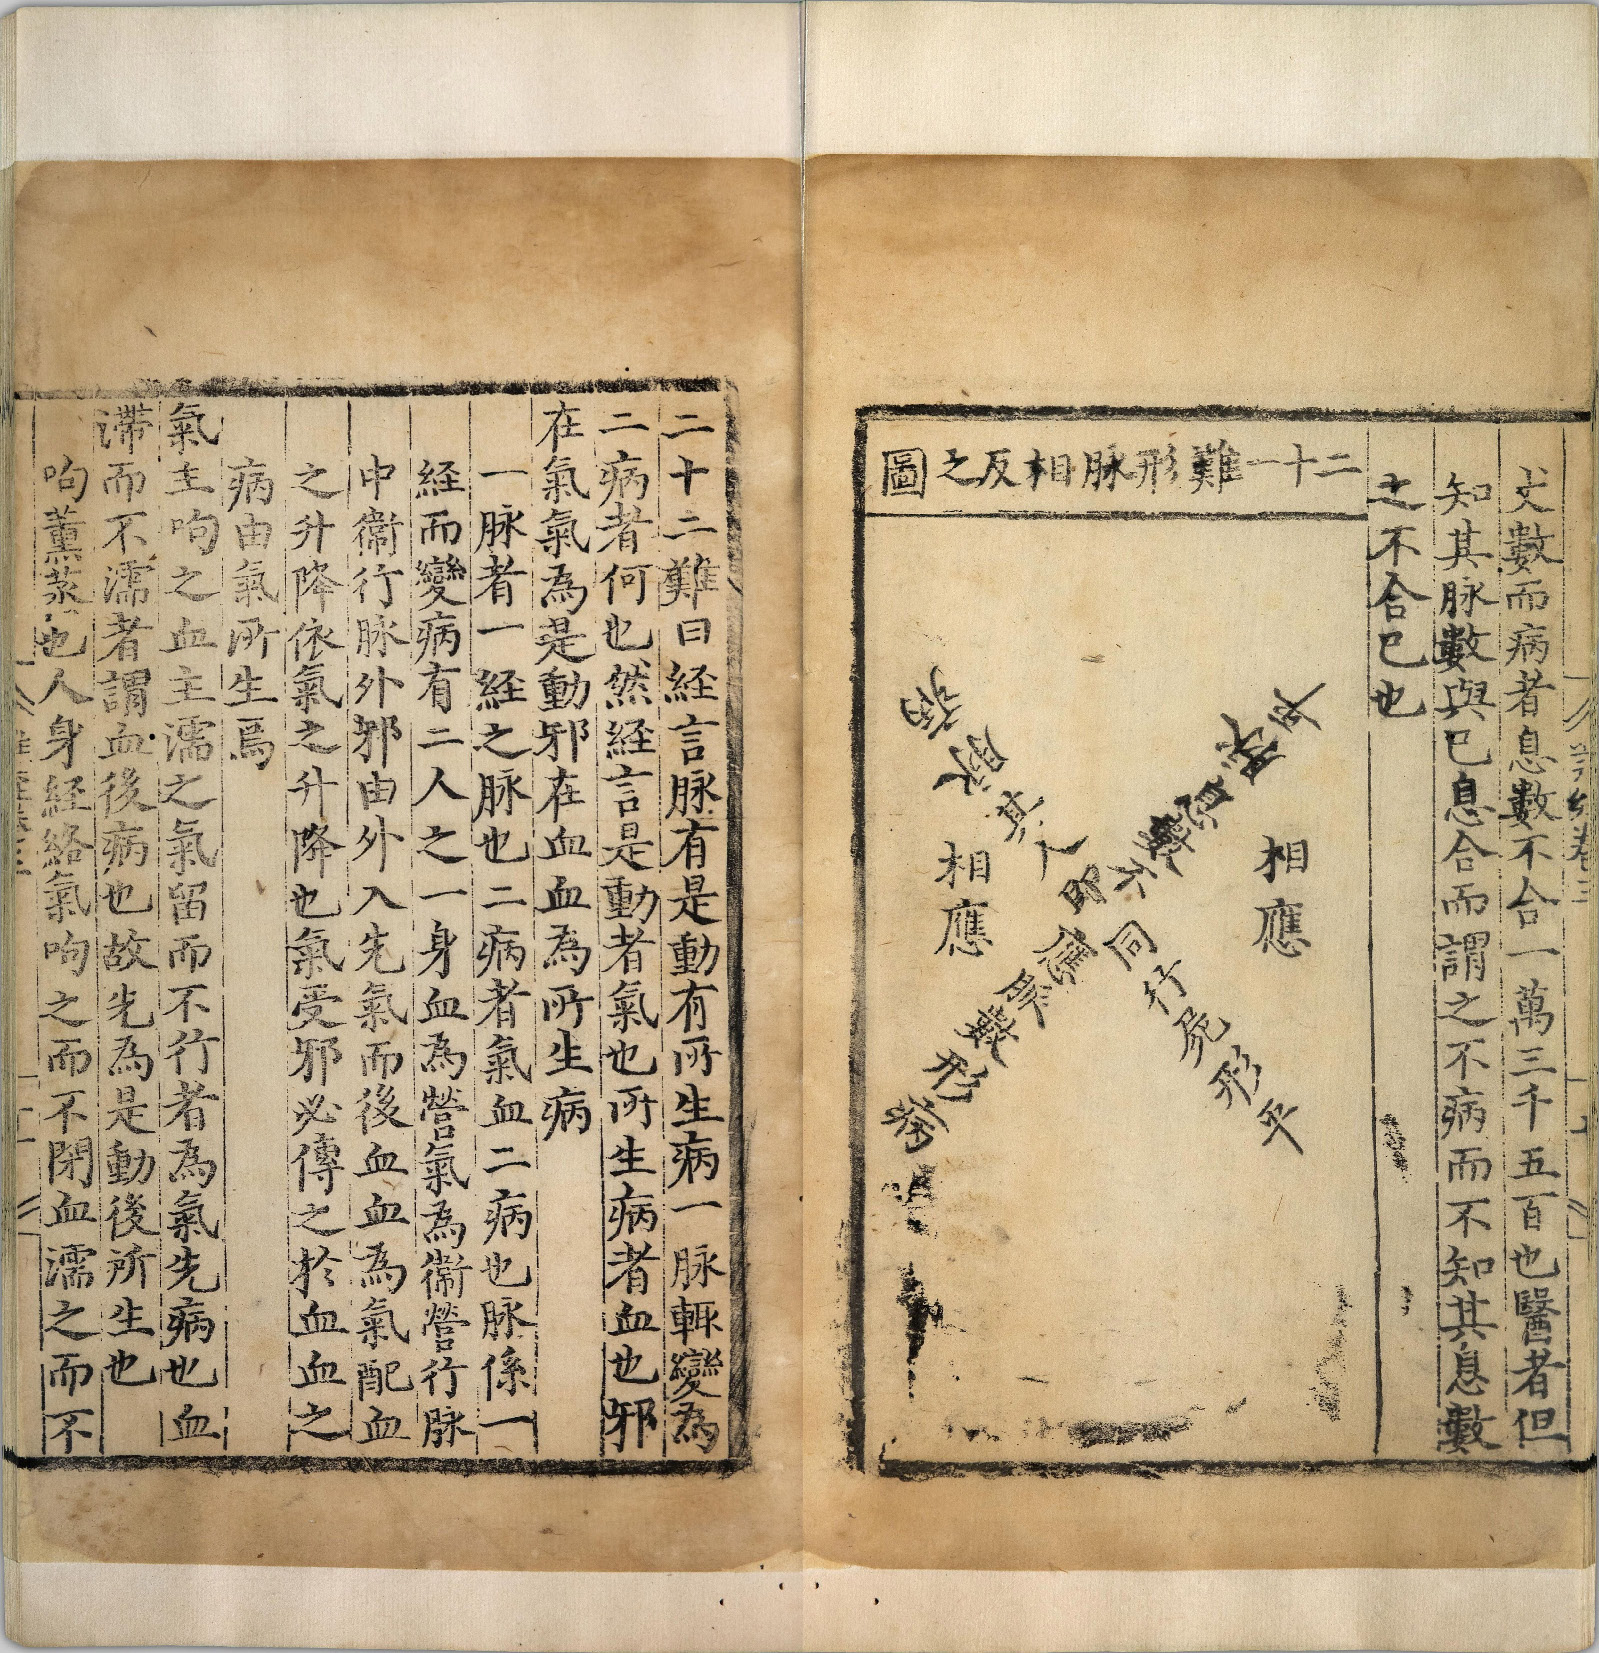 丈數而病者息數不合一萬三千五百也醫者但
知其脉數與已息合而謂之不病而不知其息數
之不合已也
二十一難形脉相反之圖
相應
相應
病脉其人即
同行屍形平
病形雖
二十二難曰経言脉有是動有所生病一脉輒變為
二病者何也然経言是動者氣也所生病者血也邪
在氣氣為是動邪在血血為所生病
一脉者一経之脉也二病者氣血二病也脉係一
経而變病有二人之一身血為營氣為衞營行脉
中衞行脉外邪由外入先氣而後血血為氣配血
之升降依氣之升降也氣受邪必傳之於血血之
病由氣所生焉
氣主呴之血主濡之氣留而不行者為氣先病也血
滯而不濡者謂血後病也故先為是動後所生也
呴薰蒸也人身経絡氣呴之而不閉血濡之而不